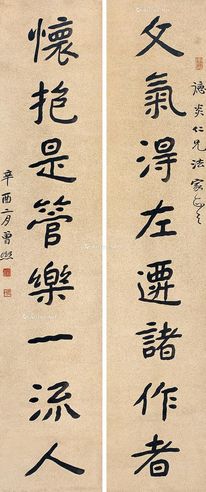 德炎仁兄法家正之
文氣得左遷諸作者
懷抱是管樂一流人
辛酉二月曾熙